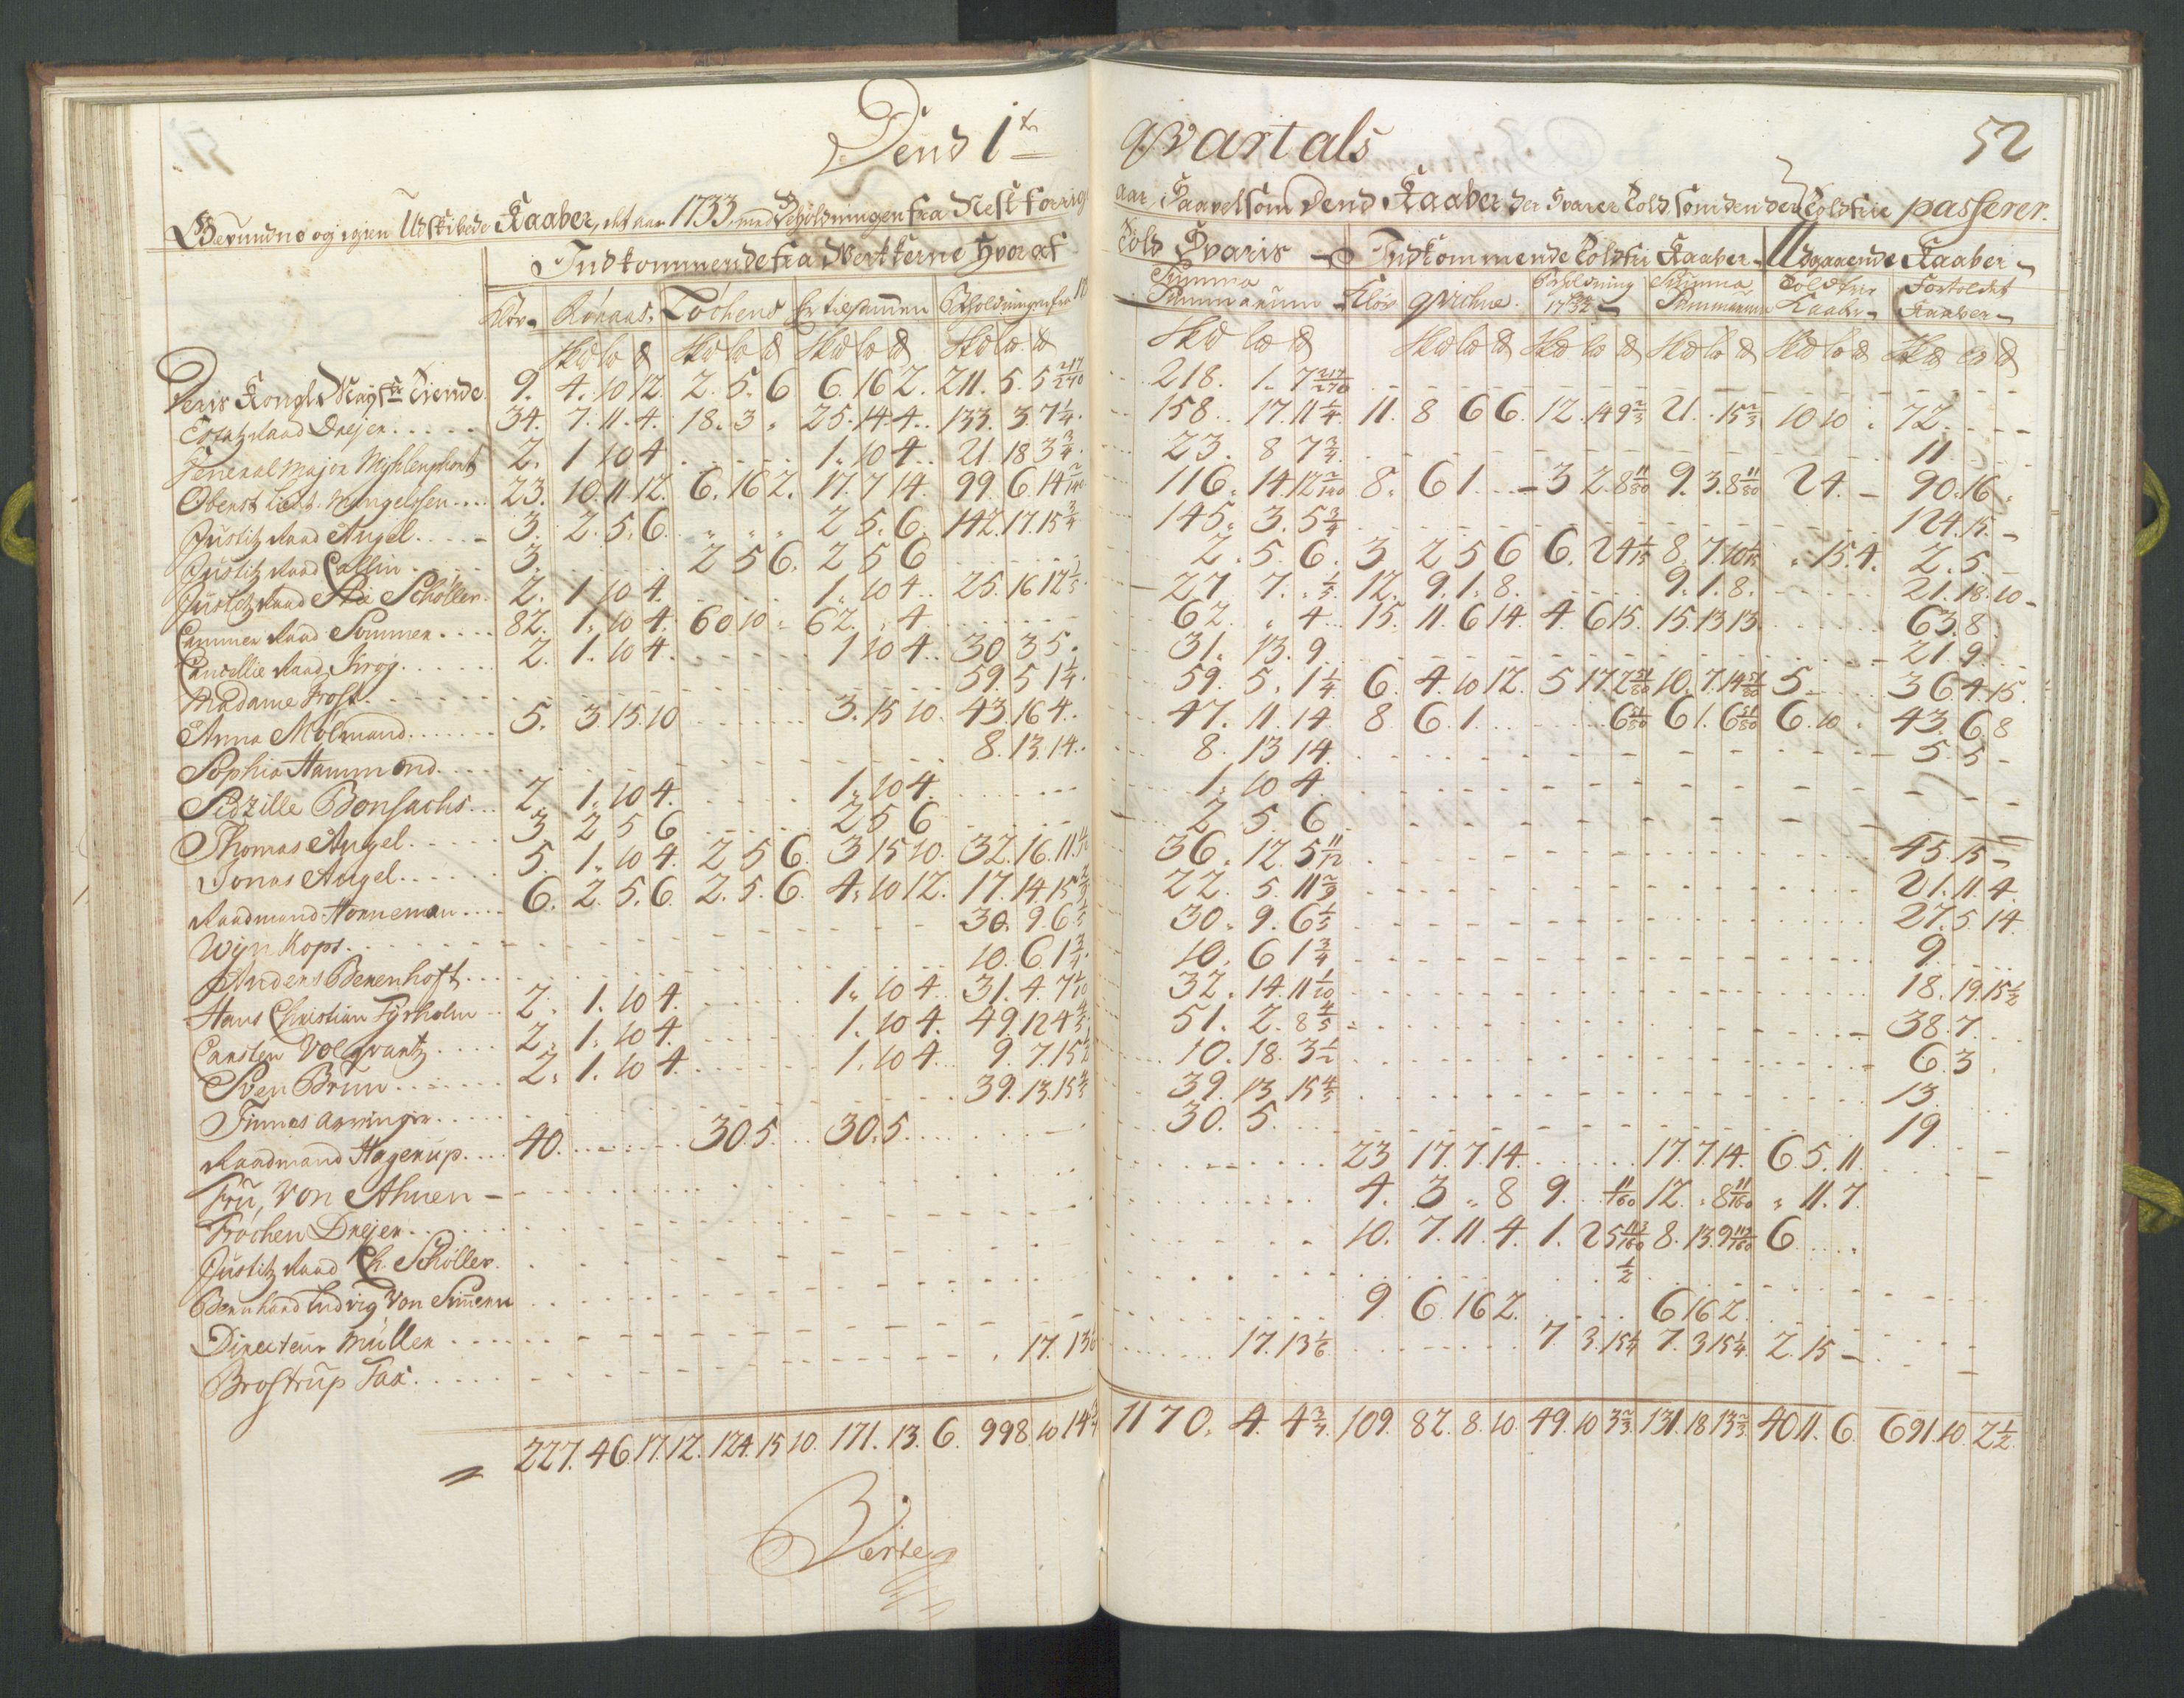 Dend 1te qvartals
52
Befundne og igien Udskibede Kaaber, det aar 1733. med Beholdningen fra Nest forrige
aar, Saavelsom Dend Kaaber der Svarer Told, som den der Toldfrie passerer.
Indkommende fra Werkkerne Hvor af Told Svaris Indkommende Toldfri Kaaber Udgaaende Kaaber
Röraas. Löchens Er tilsammen Beholdningen fra Summa Summarum qvichne. Beholdning 1732 Summa Summarum Toldfrie Kaaber Fortoldet Kaaber
Deris Kongl. Mayst. Tiende 9. 4. 10 12. 2. 5. 6 6. 16 2. 211. 5. 5 217/270 218. 1. 7 217/270
Etatz Raad Drejer 34. 7. 11. 4. 18. 3 . 25. 14 4. 133. 3. 7 1/4 158. 17. 11 1/4 11. 8 6 6. 12. 14 9 2/3 21. . 15 2/3 10 10 . 72.
General Major 2. 1 10 4 1. 10 4. 21. 18 3 3/4 23. 8 7 3/4 11
Oberst Liet. Mangelssen 23. 10. 11 12. 6. 16 2. 17. 7 14. 99. 6. 14 2/140 116. 14. 12 2/140 8. 6 1. 3 2. 8 11/80 9. 3. 8 11/80 24. 90. 16.
Justitz Raad Angel 3. 2. 5. 6. 2 5. 6. 142. 17. 15 3/4 145. 3. 5 3/4 124. 15.
Justitz Raad Collin 3. 2 5 6. 2 5 6 2. 5. 6. 3 2 5 6 6. 2 4 1/15 8. 7. 10 1/15 . 15. 4. 2. 5.
Justitz Raad Schöller 2. 1 10 4. 1. 10 4. 25. 16 12 1/5 27 7. . 1/5 12. 9. 1. 8. 9. 1. 8. 21. 18. 10
Cammer Raad Sommer 82. 1. 10 4. 60 10 . 62. . 4 62. . 4 15. 11. 6 14. 4. 6 15. 15. 13 13. 63. 8.
Cancellie Raad Krog 2. 1. 10 4. 1 10 4. 30. 3 5. 31. 13. 9 21. 9.
Madame Frost 59. 5 1 1/4 59. 5. 1 1/4 6. 4. 10 12. 5 17. 2 21/80 10. 7. 14 21/80 5 36. 4 15.
Anna Molmand 5. 3 15 10 3. 15 10. 43. 16 4. 47. 11. 14 8 6. 1. 6 51/80 6 1. 6 51/80 6. 10. 43. 6. 8
Sophia Hammond 8. 13. 14. 8. 13 14. 5. 5
Sidzille Bonsachs 2. 1. 10 4. 1. 10 4. 1. 10 4.
Thomas Angel 3 2 5 6 2 5 6 2 5. 6.
Jonas Angel 5. 1. 10 4. 2 5 6. 3 15 10. 32. 16. 11 11/12 36. 12. 5 11/12 45. 15
Raadmand Horneman 6. 2. 5. 6. 2. 5. 6. 4. 10 12. 17. 14. 15 2/3 22. 5. 11 2/3 21. 11 4.
Wijn Kops 30. 9. 6 1/5 30. 9. 6 1/5 27. 5. 14
Anders Berenhoft 10. 6. 1 3/4 10. 6 1 3/4 9.
Hans Christian Fyrholm 2. 1. 10 4. 1. 10 4. 31. 4. 7 1/10 32. 14. 11 1/10 18. 19. 15 1/2
Carsten Volqvartz 2. 1. 10 4. 1. 10 4. 49. 12 4 4/5 51. 2. 8 4/5 38. 7.
Sven Brun 2. 1. 10 4. 1. 10 4. 9. 7. 15 1/2 10. 18. 3 1/2 6. 3
Finnes arvinger 39. 13. 15 4/5 39. 13 15 4/5 13.
Raadmand Hagerup 40. 30. 5. 30. 5. 30. 5. 19
Fru, Von Ahnen 23 17. 7. 14. 17. 7. 14. 6 5. 11
Fröchen Drejer 4. 3 . 8 9. . 11/160 12. . 8 11/160 . 11. 7.
Justitz Raad Ch. Schöller 10. 7. 11. 4. 1. 2 5 113/160 8. 13. 9 113/160 6
Bernhard Ludvig Von 1/2
Directeur Müller 9 6. 16 2. 6 16 2.
Brostrup Fax 17. 13 1/6 17. 13 1/6 7. 3. 15 1/4 7. 3 15 1/4 2. 15
227. 46. 17. 12. 124. 15 10. 171. 13. 6. 998. 10 14 3/4 1170. 4. 4 3/4 109. 82. 8. 10. 49. 10 3 2/3 131. 18 13 2/3 40 11. 6. 691. 10. 2 1/2
Verte